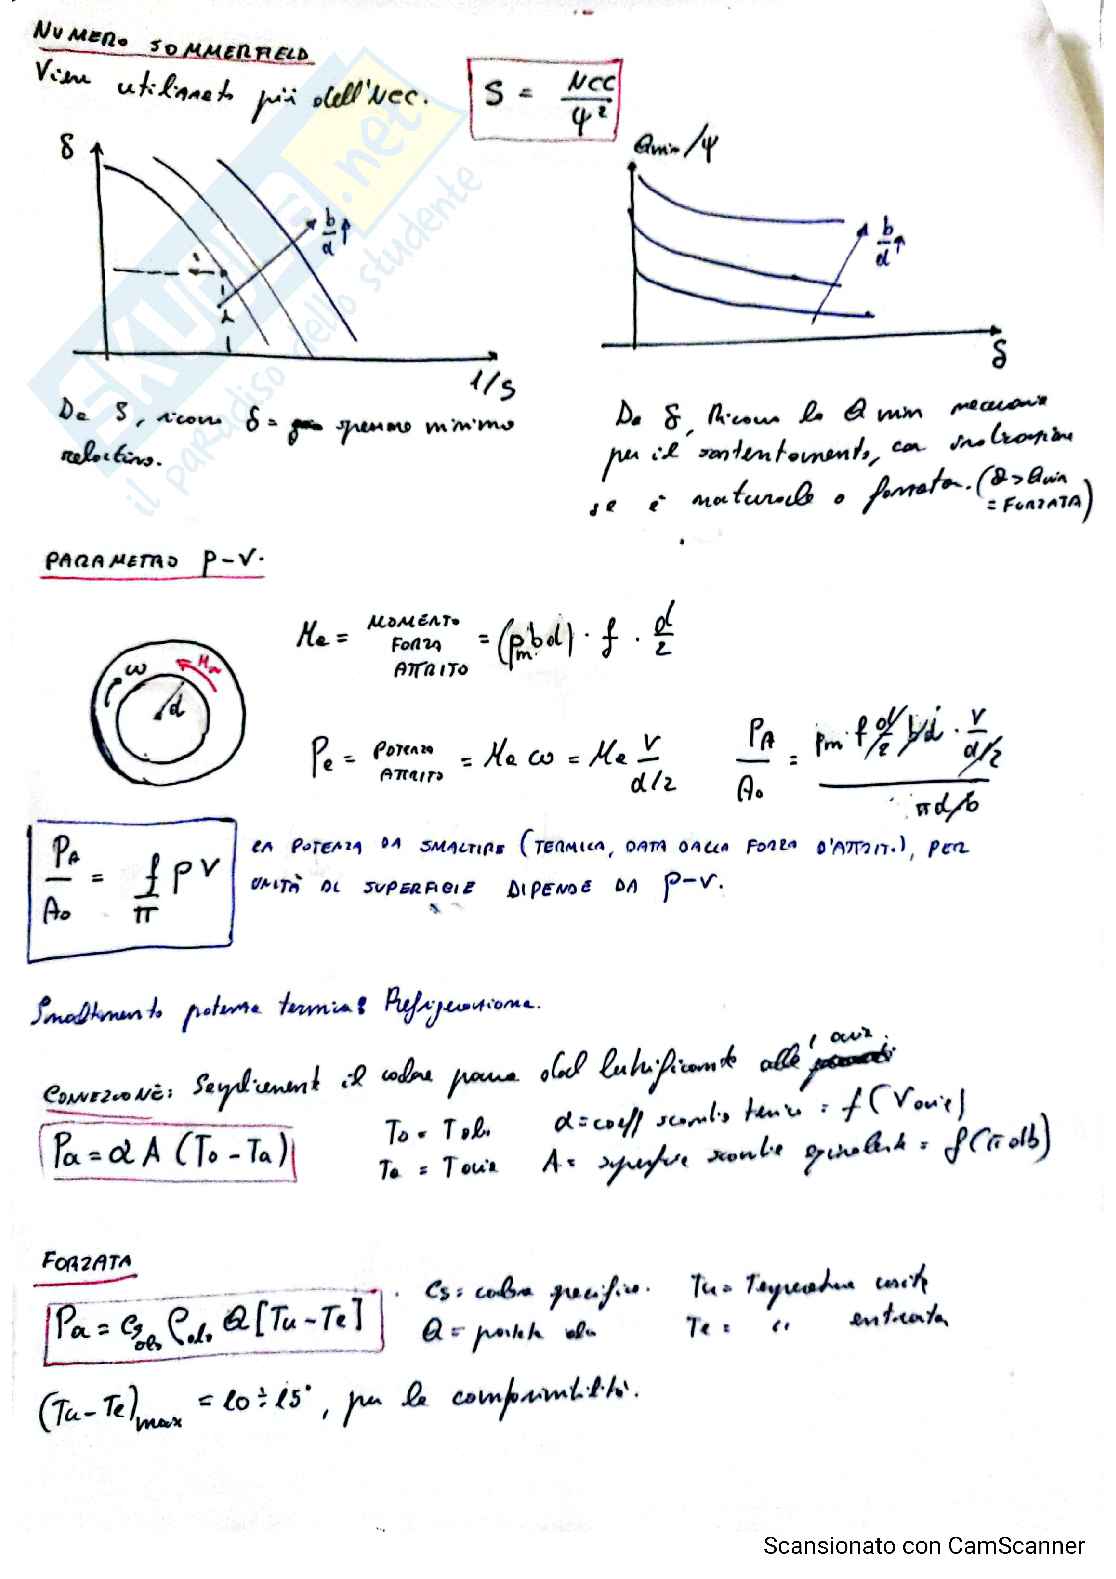 NUMERO SOMMERFIELD
Viene utilizzato più dell'NCC.
S = NCC / ψ²
δ
b/d ↑
1/S
Qmin/ψ
b/d ↑
δ
Da S, ricavo δ = spessore minimo
relativo.
Da δ, Ricavo la Qmin necessaria
per il sostentamento, con
se è naturale o forzata. (Q>Qmin
= FORZATA)
PARAMETRO P-V.
ω
Ma
d
Ma = MOMENTO FORZA ATTRITO = (pm b d) · f · d/2
Pa = POTENZA ATTRITO = Ma ω = Ma V/(d/2)
PA/A0 = pm f d/2 b d · V/(d/2) / π d b
PA/A0 = f/π P V
LA POTENZA DA SMALTIRE (TERMICA, DATA DALLA FORZA D'ATTRIT.), PER
UNITÀ DI SUPERFICIE DIPENDE DA P-V.
Smaltimento potenza termica: Refrigerazione.
CONVEZIONE: Semplicemente il calore passa dal lubrificante all'aria.
Pa = α A (To - Ta)
To = Tolio
Ta = Taria
α = coeff scambio termico = f(Varia)
A = superficie scambio equivalente = f(πdb)
FORZATA
Pa = Cs olio ρolio Q [Tu - Te]
Cs = calore specifico.
Q = portata olio
Tu = Temperatura uscita
Te = " entrata
(Tu - Te)max = 10 ÷ 15°, per la comprimibilità.
SKUOLA.net
il paradiso dello studente
Scansionato con CamScanner